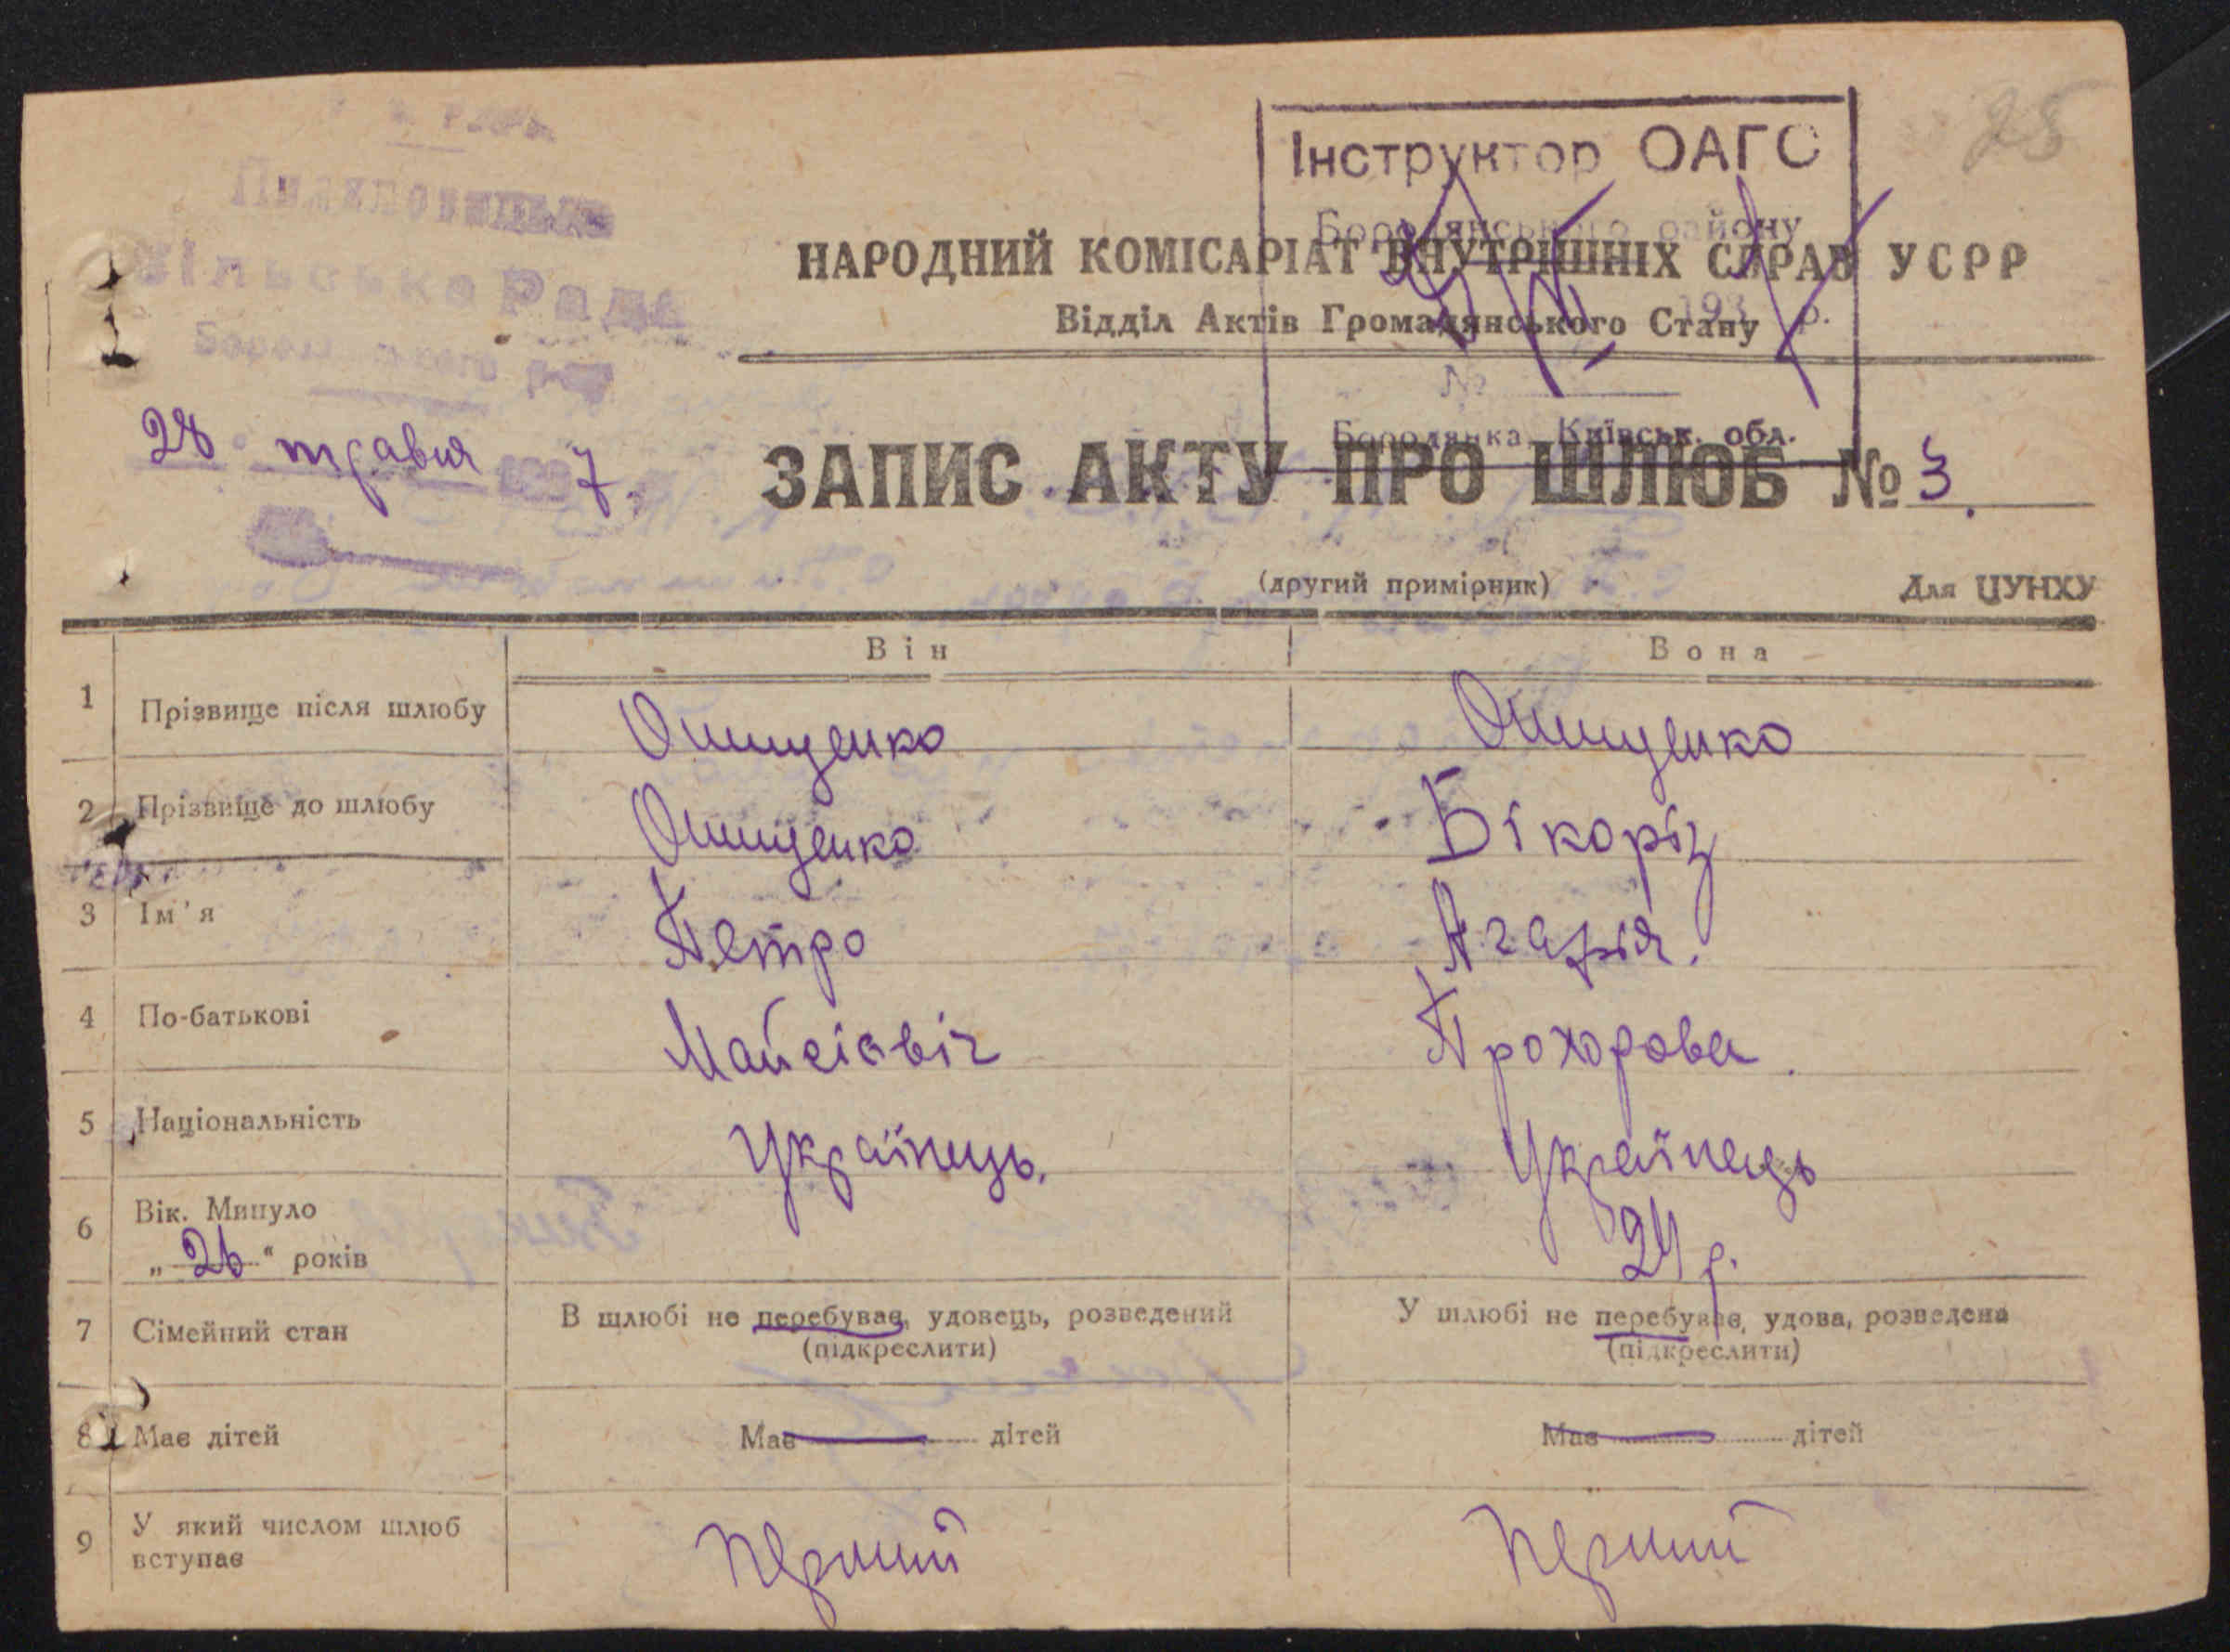 25
Інструктор ОАГС
Бородянського району
193 р.
№
Бородянка, Київськ. обл.
Сільська Рада
28 травня 1937.
НАРОДНИЙ КОМІСАРІАТ ВНУТРІШНІХ СПРАВ УСРР
Відділ Актів Громадянського Стану
ЗАПИС АКТУ ПРО ШЛЮБ № 3.
(другий примірник)
Для ЦУНХУ
Він Вона
1 Прізвище після шлюбу Онищенко Онищенко
2 Прізвище до шлюбу Онищенко Бікоріз
3 Ім'я Петро Агафія.
4 По-батькові Мойсієвіч Прохорова.
5 Національність Українець. Українець
6 Вік. Минуло
„26“ років 24 р.
7 Сімейний стан В шлюбі не перебуває, удовець, розведений У шлюбі не перебуває, удова, розведена
(підкреслити) (підкреслити)
8 Має дітей Має — дітей Має — дітей
9 У який числом шлюб
вступає перший перший